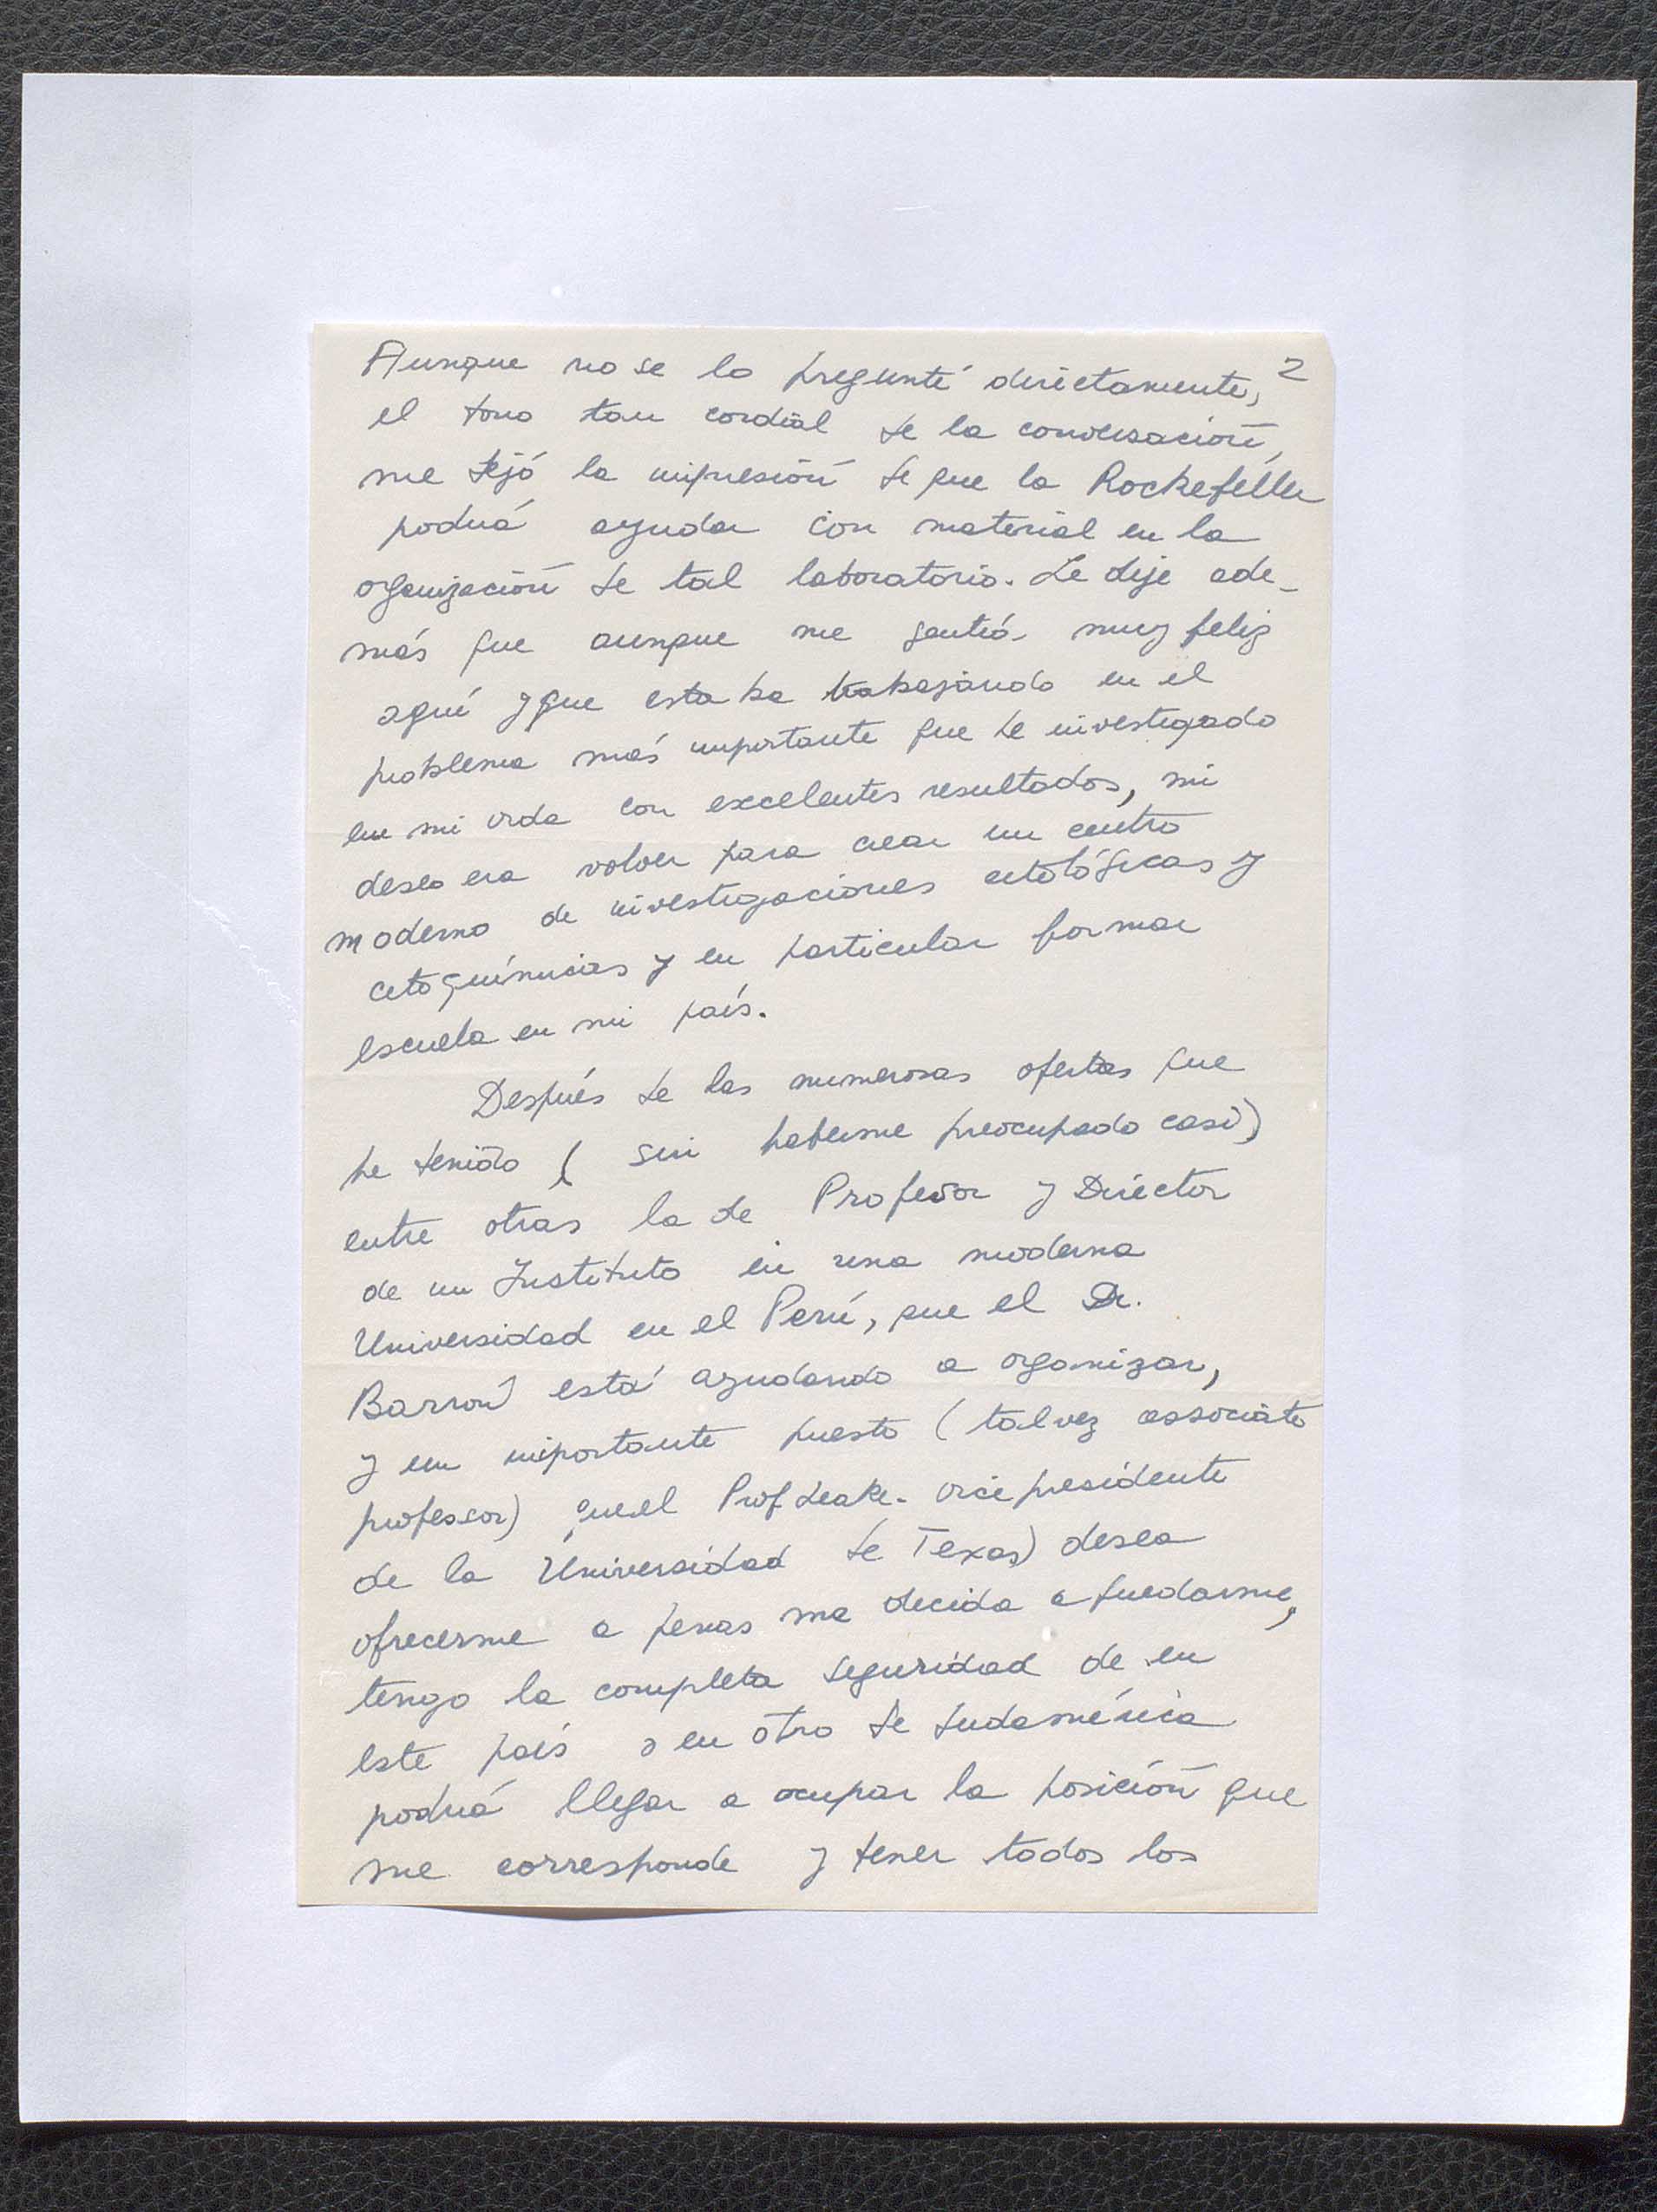 2
Aunque no se lo pregunté directamente,
el tono tan cordial de la conversación,
me dejó la impresión de que la Rockefeller
podrá ayudar con material en la
organización de tal laboratorio. Le dije ade-
más que aunque me sentía muy feliz
aquí y que estaba trabajando en el
problema más importante que he investigado
en mi vida con excelentes resultados, mi
deseo era volver para crear un centro
moderno de investigaciones citológicas y
citoquímicas y en particular formar
escuela en mi país.
Después de las numerosas ofertas que
he tenido (sin haberme preocupado casi)
entre otras la de Profesor y Director
de un Instituto en una moderna
Universidad en el Perú, que el Dr.
Barrón está ayudando a organizar,
y un importante puesto (tal vez associate
professor) que el Prof Leake - vice presidente
de la Universidad de Texas) desea
ofrecerme a penas me decida a quedarme,
tengo la completa seguridad de en
este país o en otro de Sudamérica
podrá llegar a ocupar la posición que
me corresponde y tener todos los